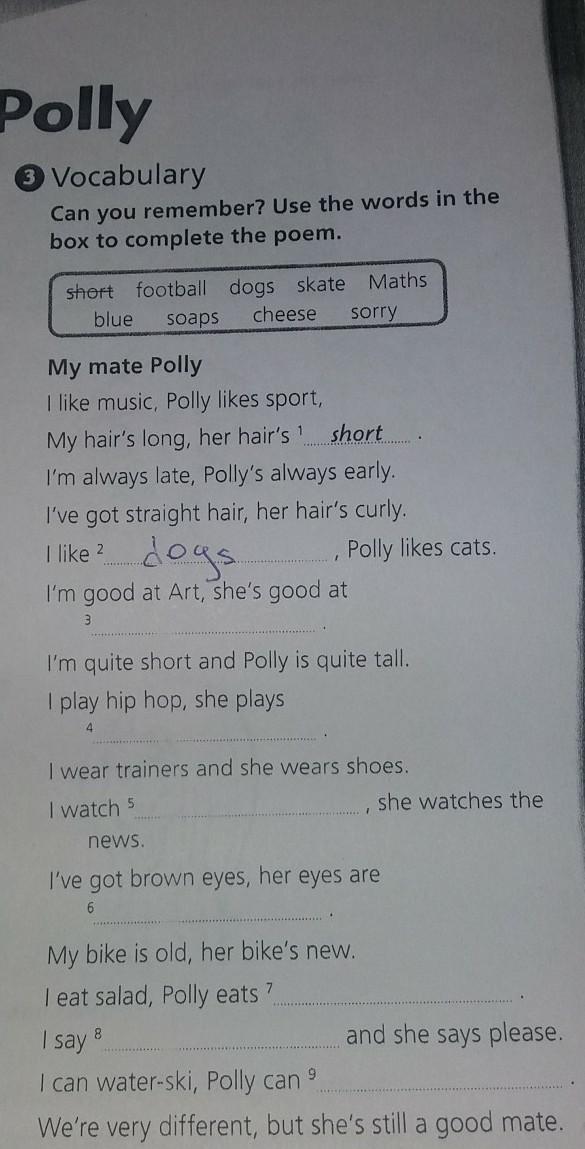 Polly
3 Vocabulary
Can you remember? Use the words in the
box to complete the poem.
short football dogs skate Maths
blue soaps cheese sorry
My mate Polly
I like music, Polly likes sport,
My hair's long, her hair's 1 short .
I'm always late, Polly's always early.
I've got straight hair, her hair's curly.
I like 2 dogs , Polly likes cats.
I'm good at Art, she's good at
3 .
I'm quite short and Polly is quite tall.
I play hip hop, she plays
4 .
I wear trainers and she wears shoes.
I watch 5 , she watches the
news.
I've got brown eyes, her eyes are
6 .
My bike is old, her bike's new.
I eat salad, Polly eats 7 .
I say 8 and she says please.
I can water-ski, Polly can 9 .
We're very different, but she's still a good mate.